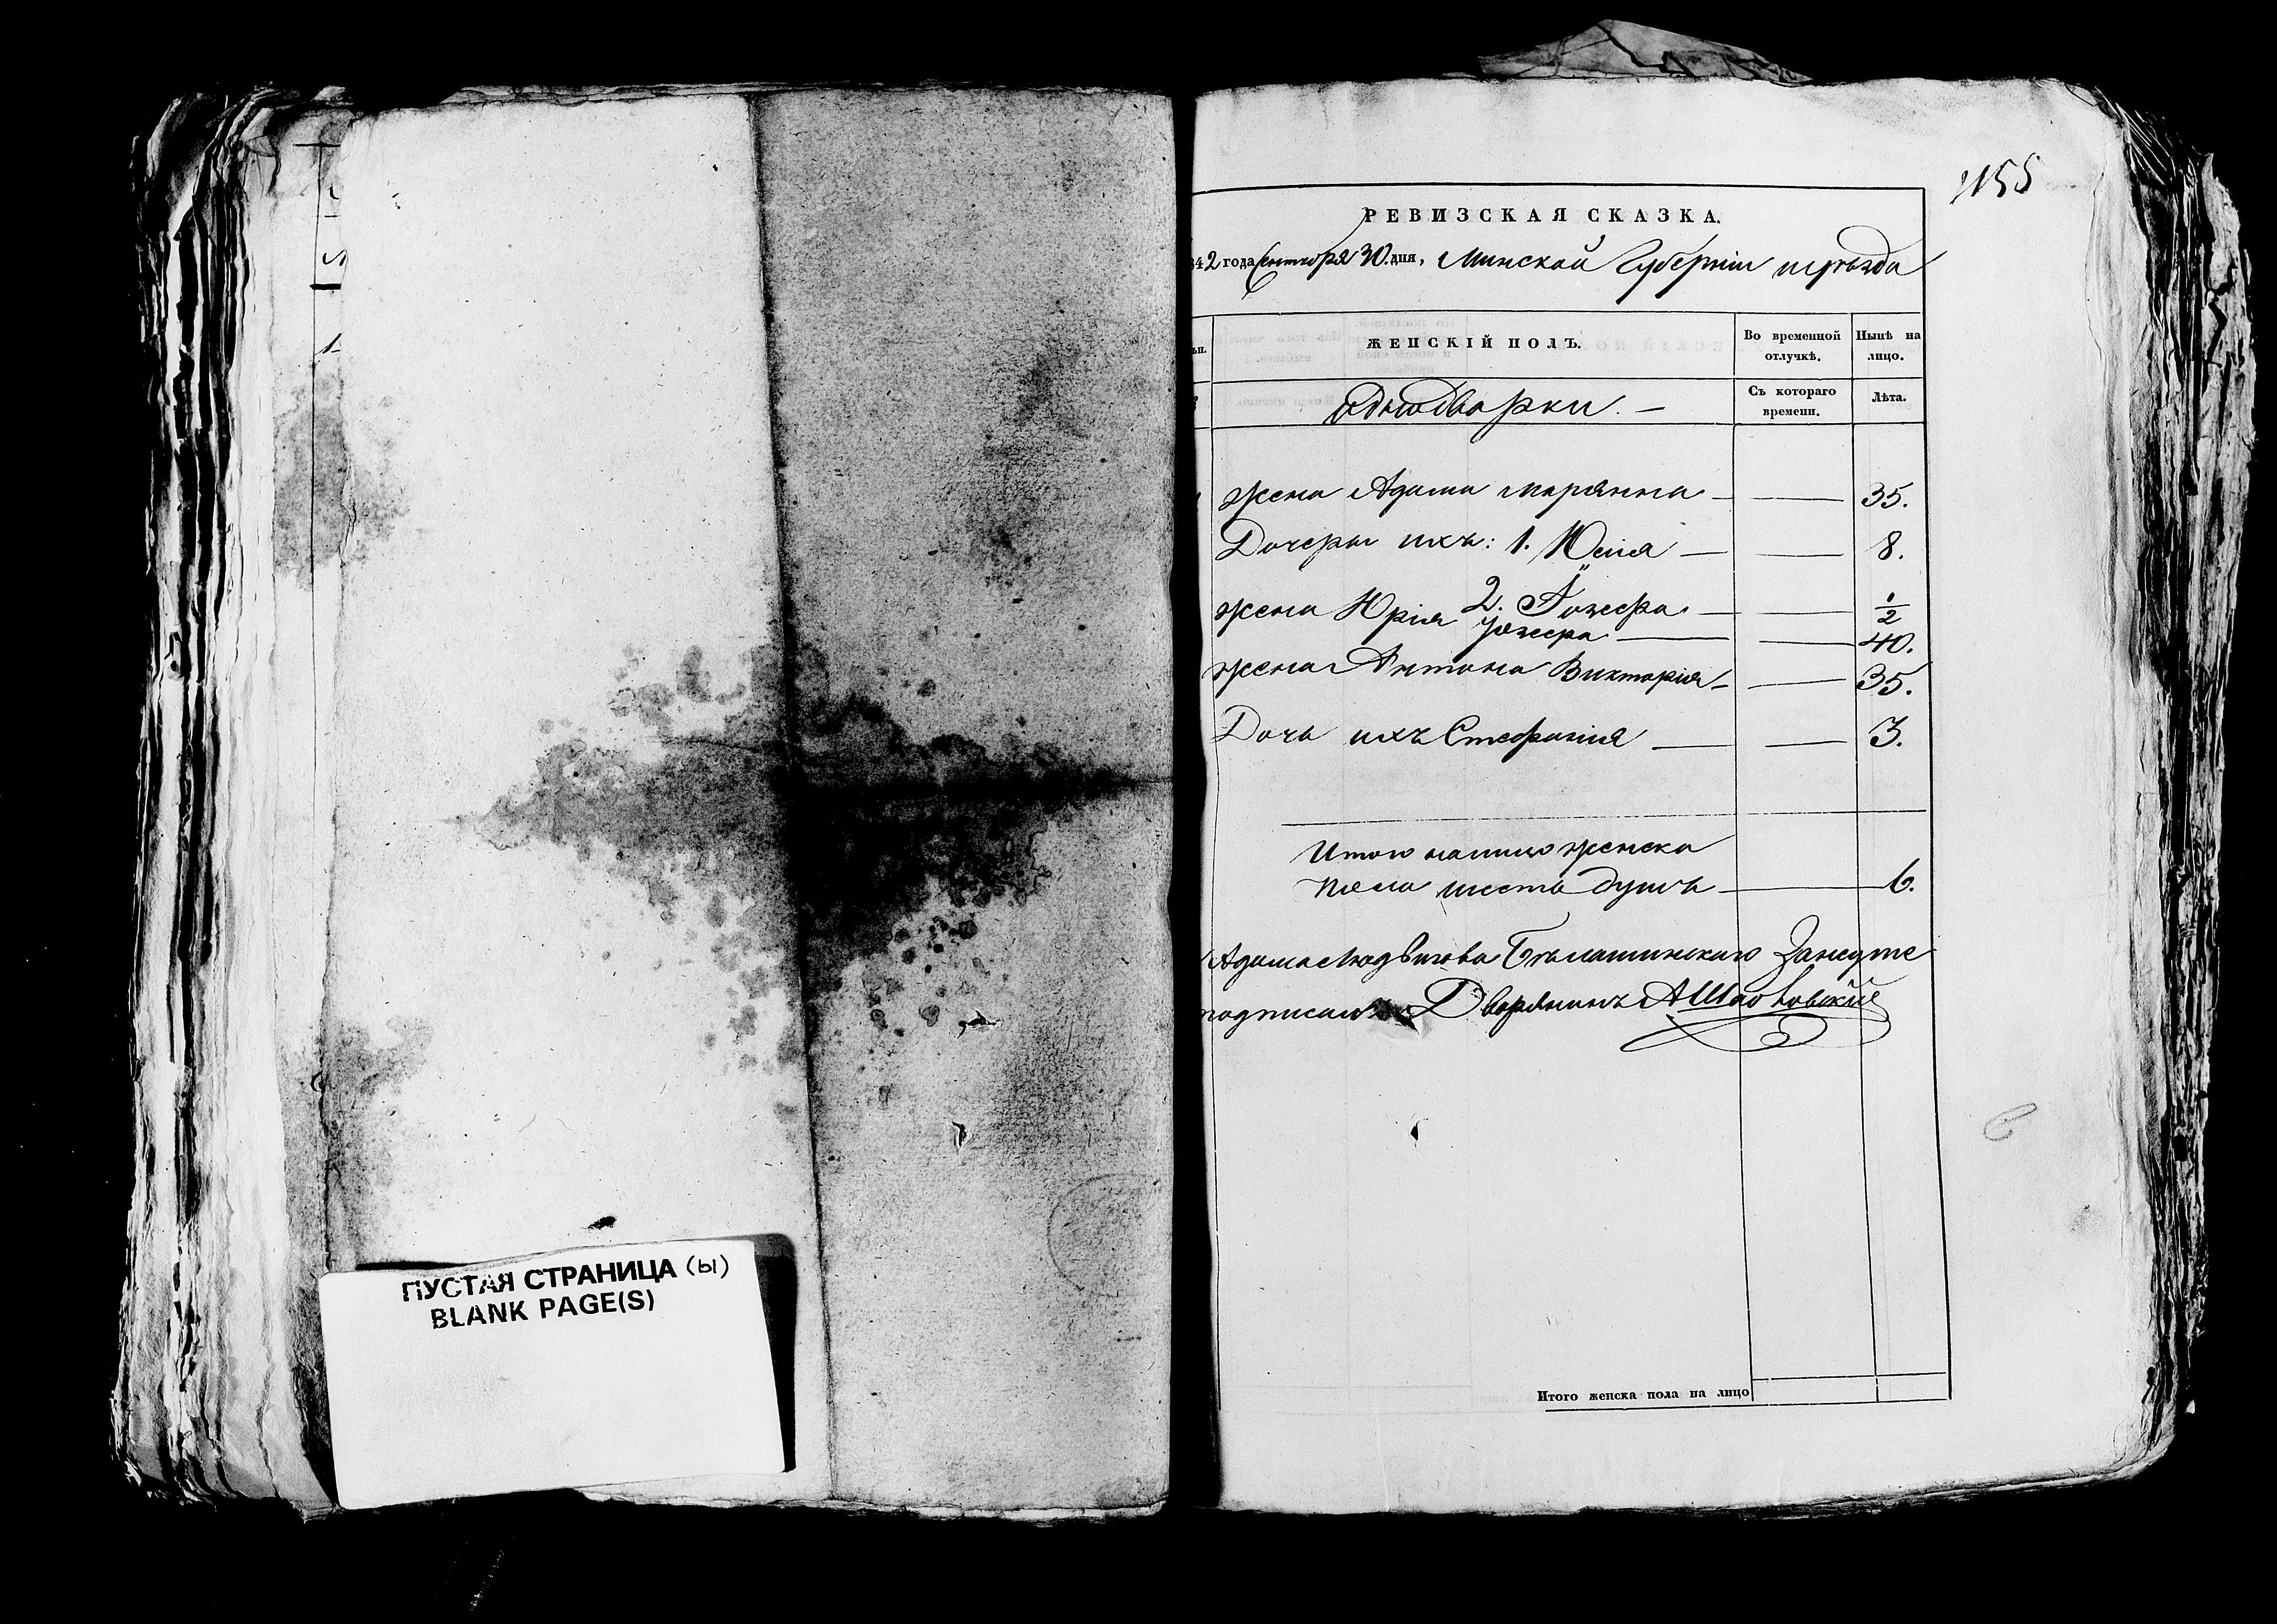 ПУСТАЯ СТРАНИЦА (ы)
BLANK PAGE(S)
1155
РЕВИЗСКАЯ СКАЗКА.
42 года Сентября 30 дня, Минской Губерніи и уѣзда
ЖЕНСКІЙ ПОЛЪ.
Во временной отлучкѣ.
Нынѣ на лицо.
Однодворки. —
Съ котораго времени.
Лѣта.
жена Адама Марянна — — 35.
Дочери ихъ: 1. Юлія — — 8.
2. Іозефа. — — 1/2
жена Юрія Іозефа — — 40.
жена Антона Викторія — — 35.
Дочь ихъ Стефанія — — 3.
Итого налицо женска
пола шесть душъ — 6.
Адама Людвигова
подписалъ Дворянинъ
Итого женска пола на лицо